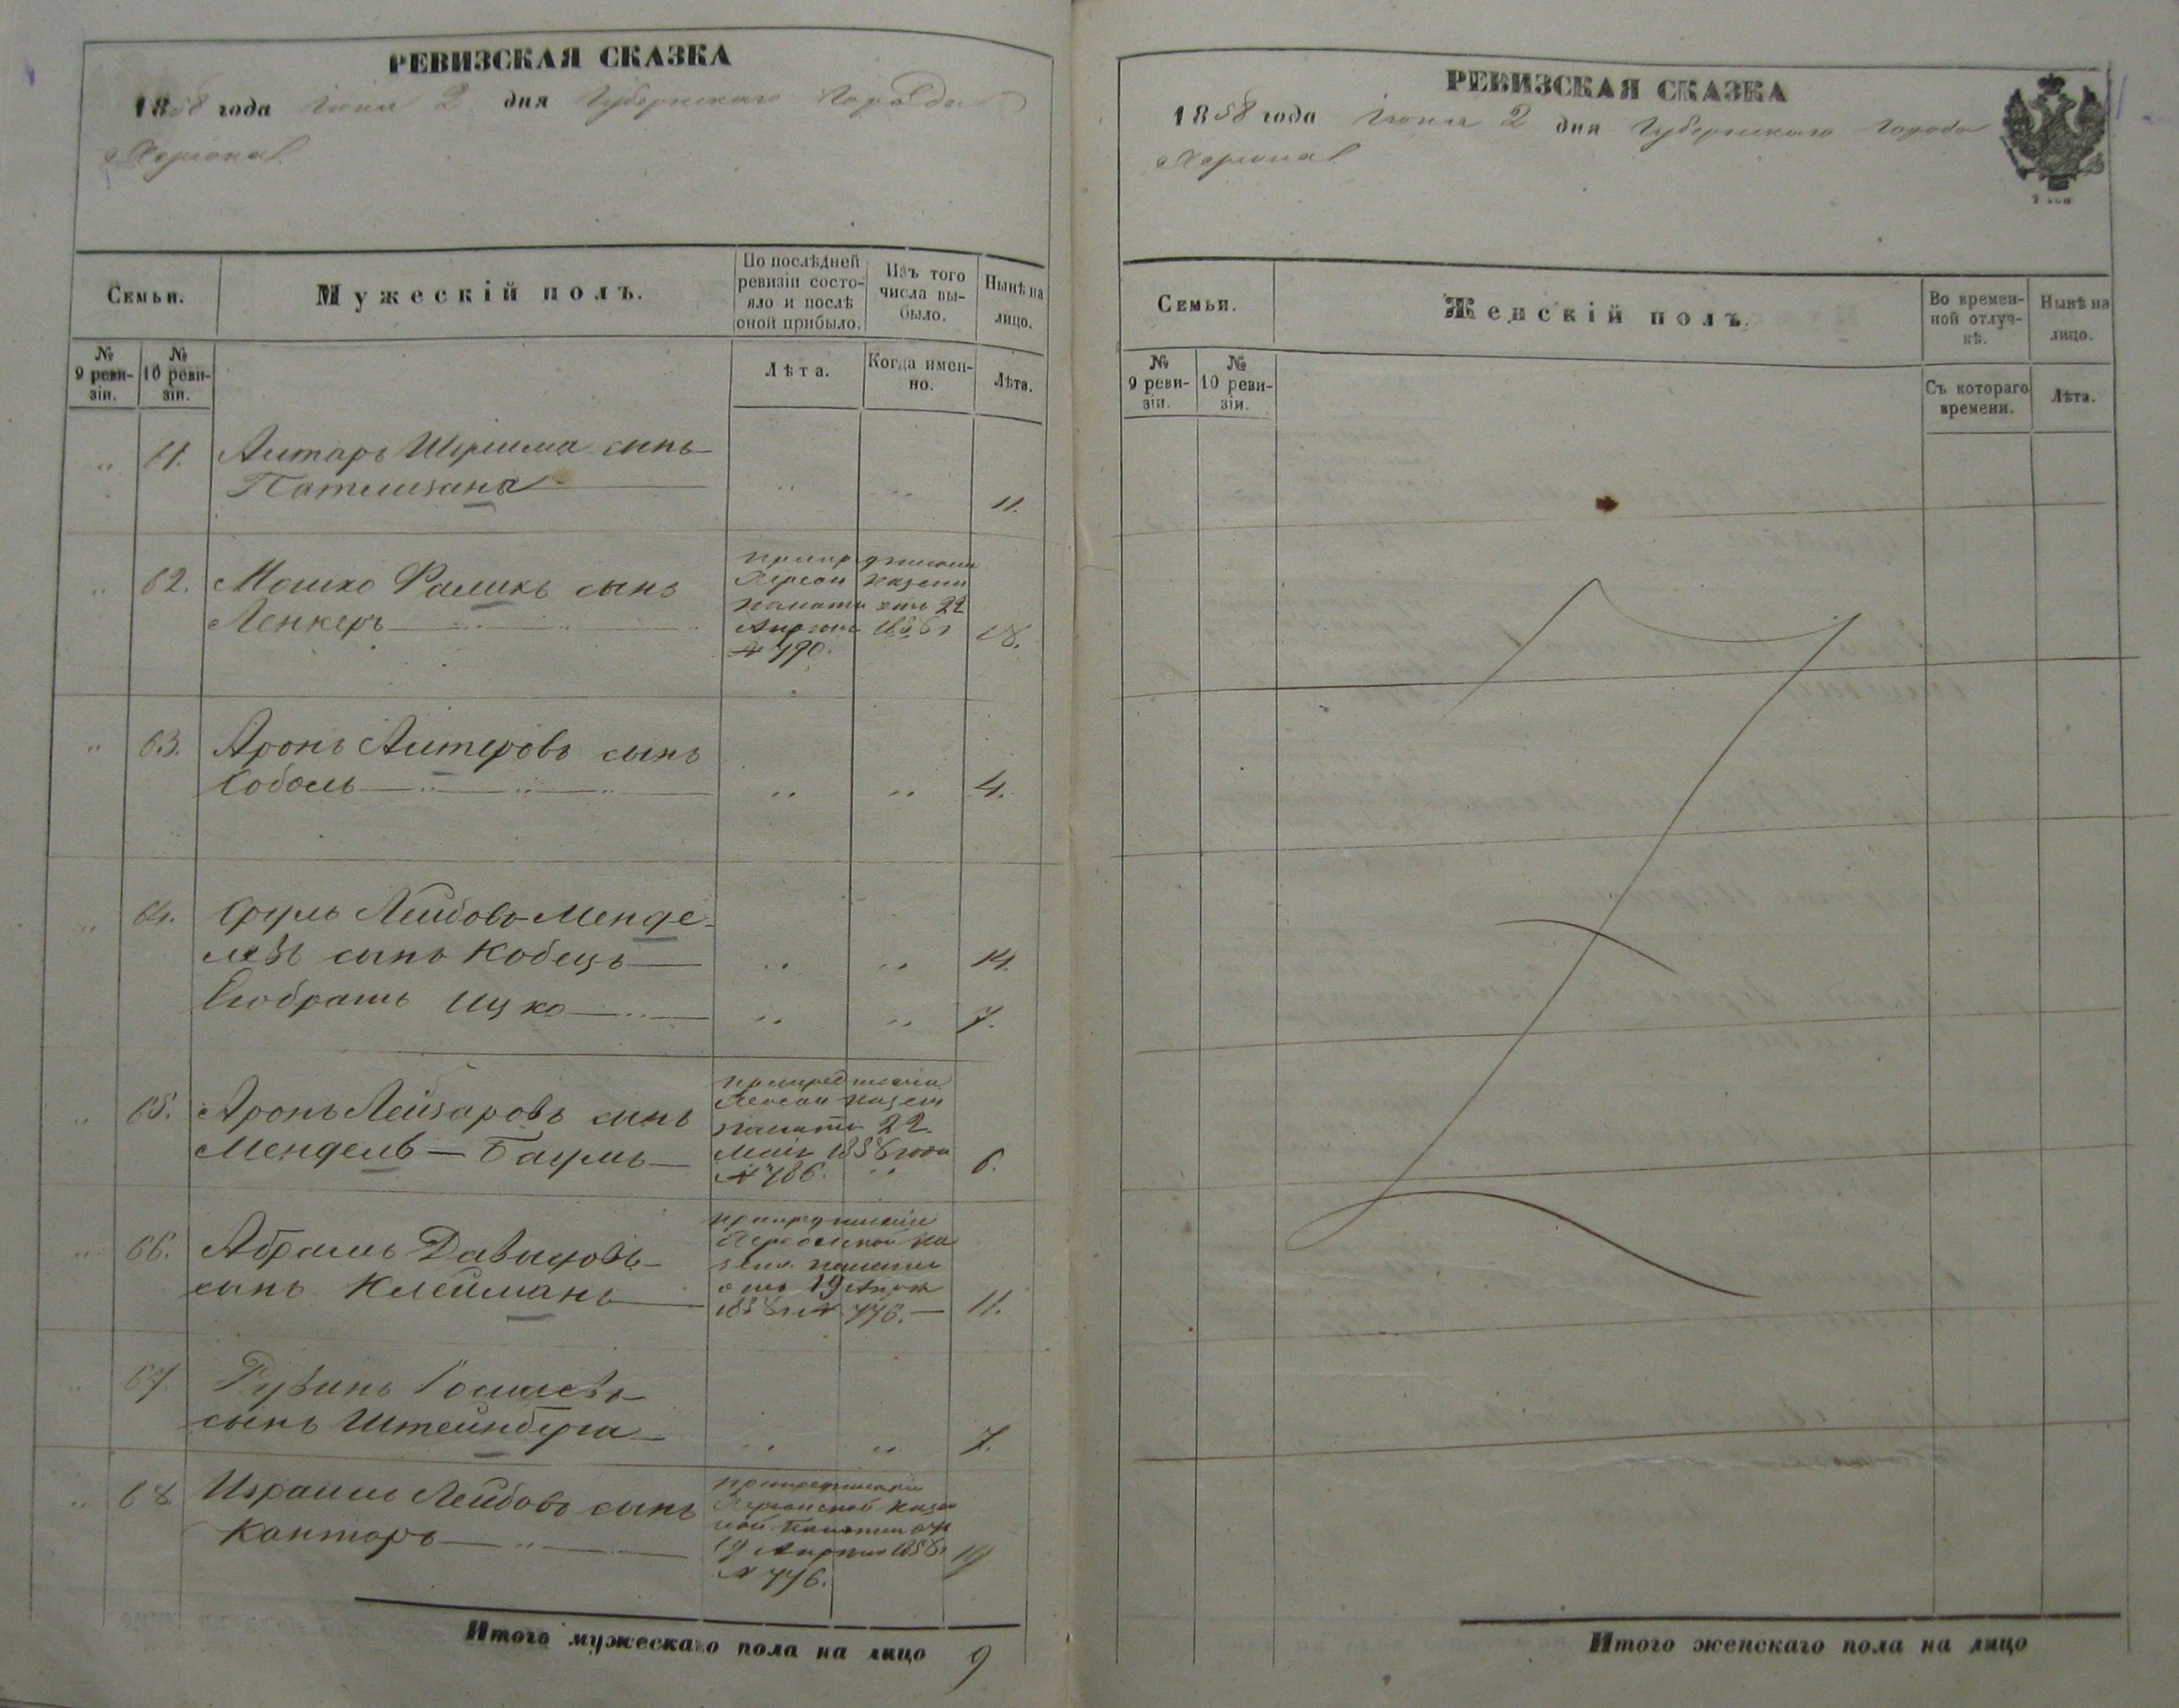 РЕВИЗСКАЯ СКАЗКА
1858 года Июня 2 дня Губернскаго Города
Херсона
Семьи.
Мужескій полъ.
По послѣдней
ревизіи состо-
яло и послѣ
оной прибыло.
Изъ того
числа вы-
было.
Нынѣ на
лицо.
№
9 реви-
зіи.
№
10 реви-
зіи.
Лѣта.
Когда имен-
но.
Лѣта.
" 61. сынъ
" " 11.
" 62. Мошко сынъ
Ленкеръ
Херсон Казенн
Палаты отъ 22
Апреля 1858 г
№ 790.
18.
" 63. Аронъ Аптеровъ сынъ
Соболь " " 4.
" 64. Сруль Лейбовъ-Менде-
левъ сынъ Кобецъ " " 14.
Его братъ Ицко " " 7.
" 65. Аронъ Лейзаровъ сынъ
Мендель-Баумъ
Херсон Казен
Палаты 22
1858 года
№ 786. " 6.
" 66. Абрамъ Давыдовъ
сынъ Клейманъ
предписанію
Херсонской Ка
зен. Палаты
отъ 19 Апреля
1858 г № 776. 11.
" 67. Рувинъ
сынъ Штейнберга " " 7.
" 68. Израиль Лейбовъ сынъ
Канторъ
предписанію
Херсонской Казен
ной Палаты отъ
19 Апреля 1858 г
№ 776.
Итого мужескаго пола на лицо 9
РЕВИЗСКАЯ СКАЗКА
1858 года Июня 2 дня Губернскаго Города
Херсона
Семьи.
Женскій полъ.
Во времен-
ной отлуч-
кѣ.
Нынѣ на
лицо.
№
9 реви-
зіи.
№
10 реви-
зіи.
Съ котораго
времени.
Лѣта.
Итого женскаго пола на лицо